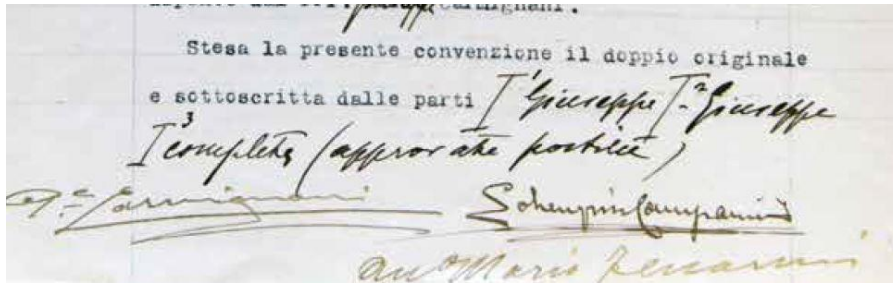 Carmignani.
Stesa la presente convenzione il doppio originale
e sottoscritta dalle parti I¹ Giuseppe I² Giuseppe
I³ completa (approvate postille)
Carmignani Campanini
Mario